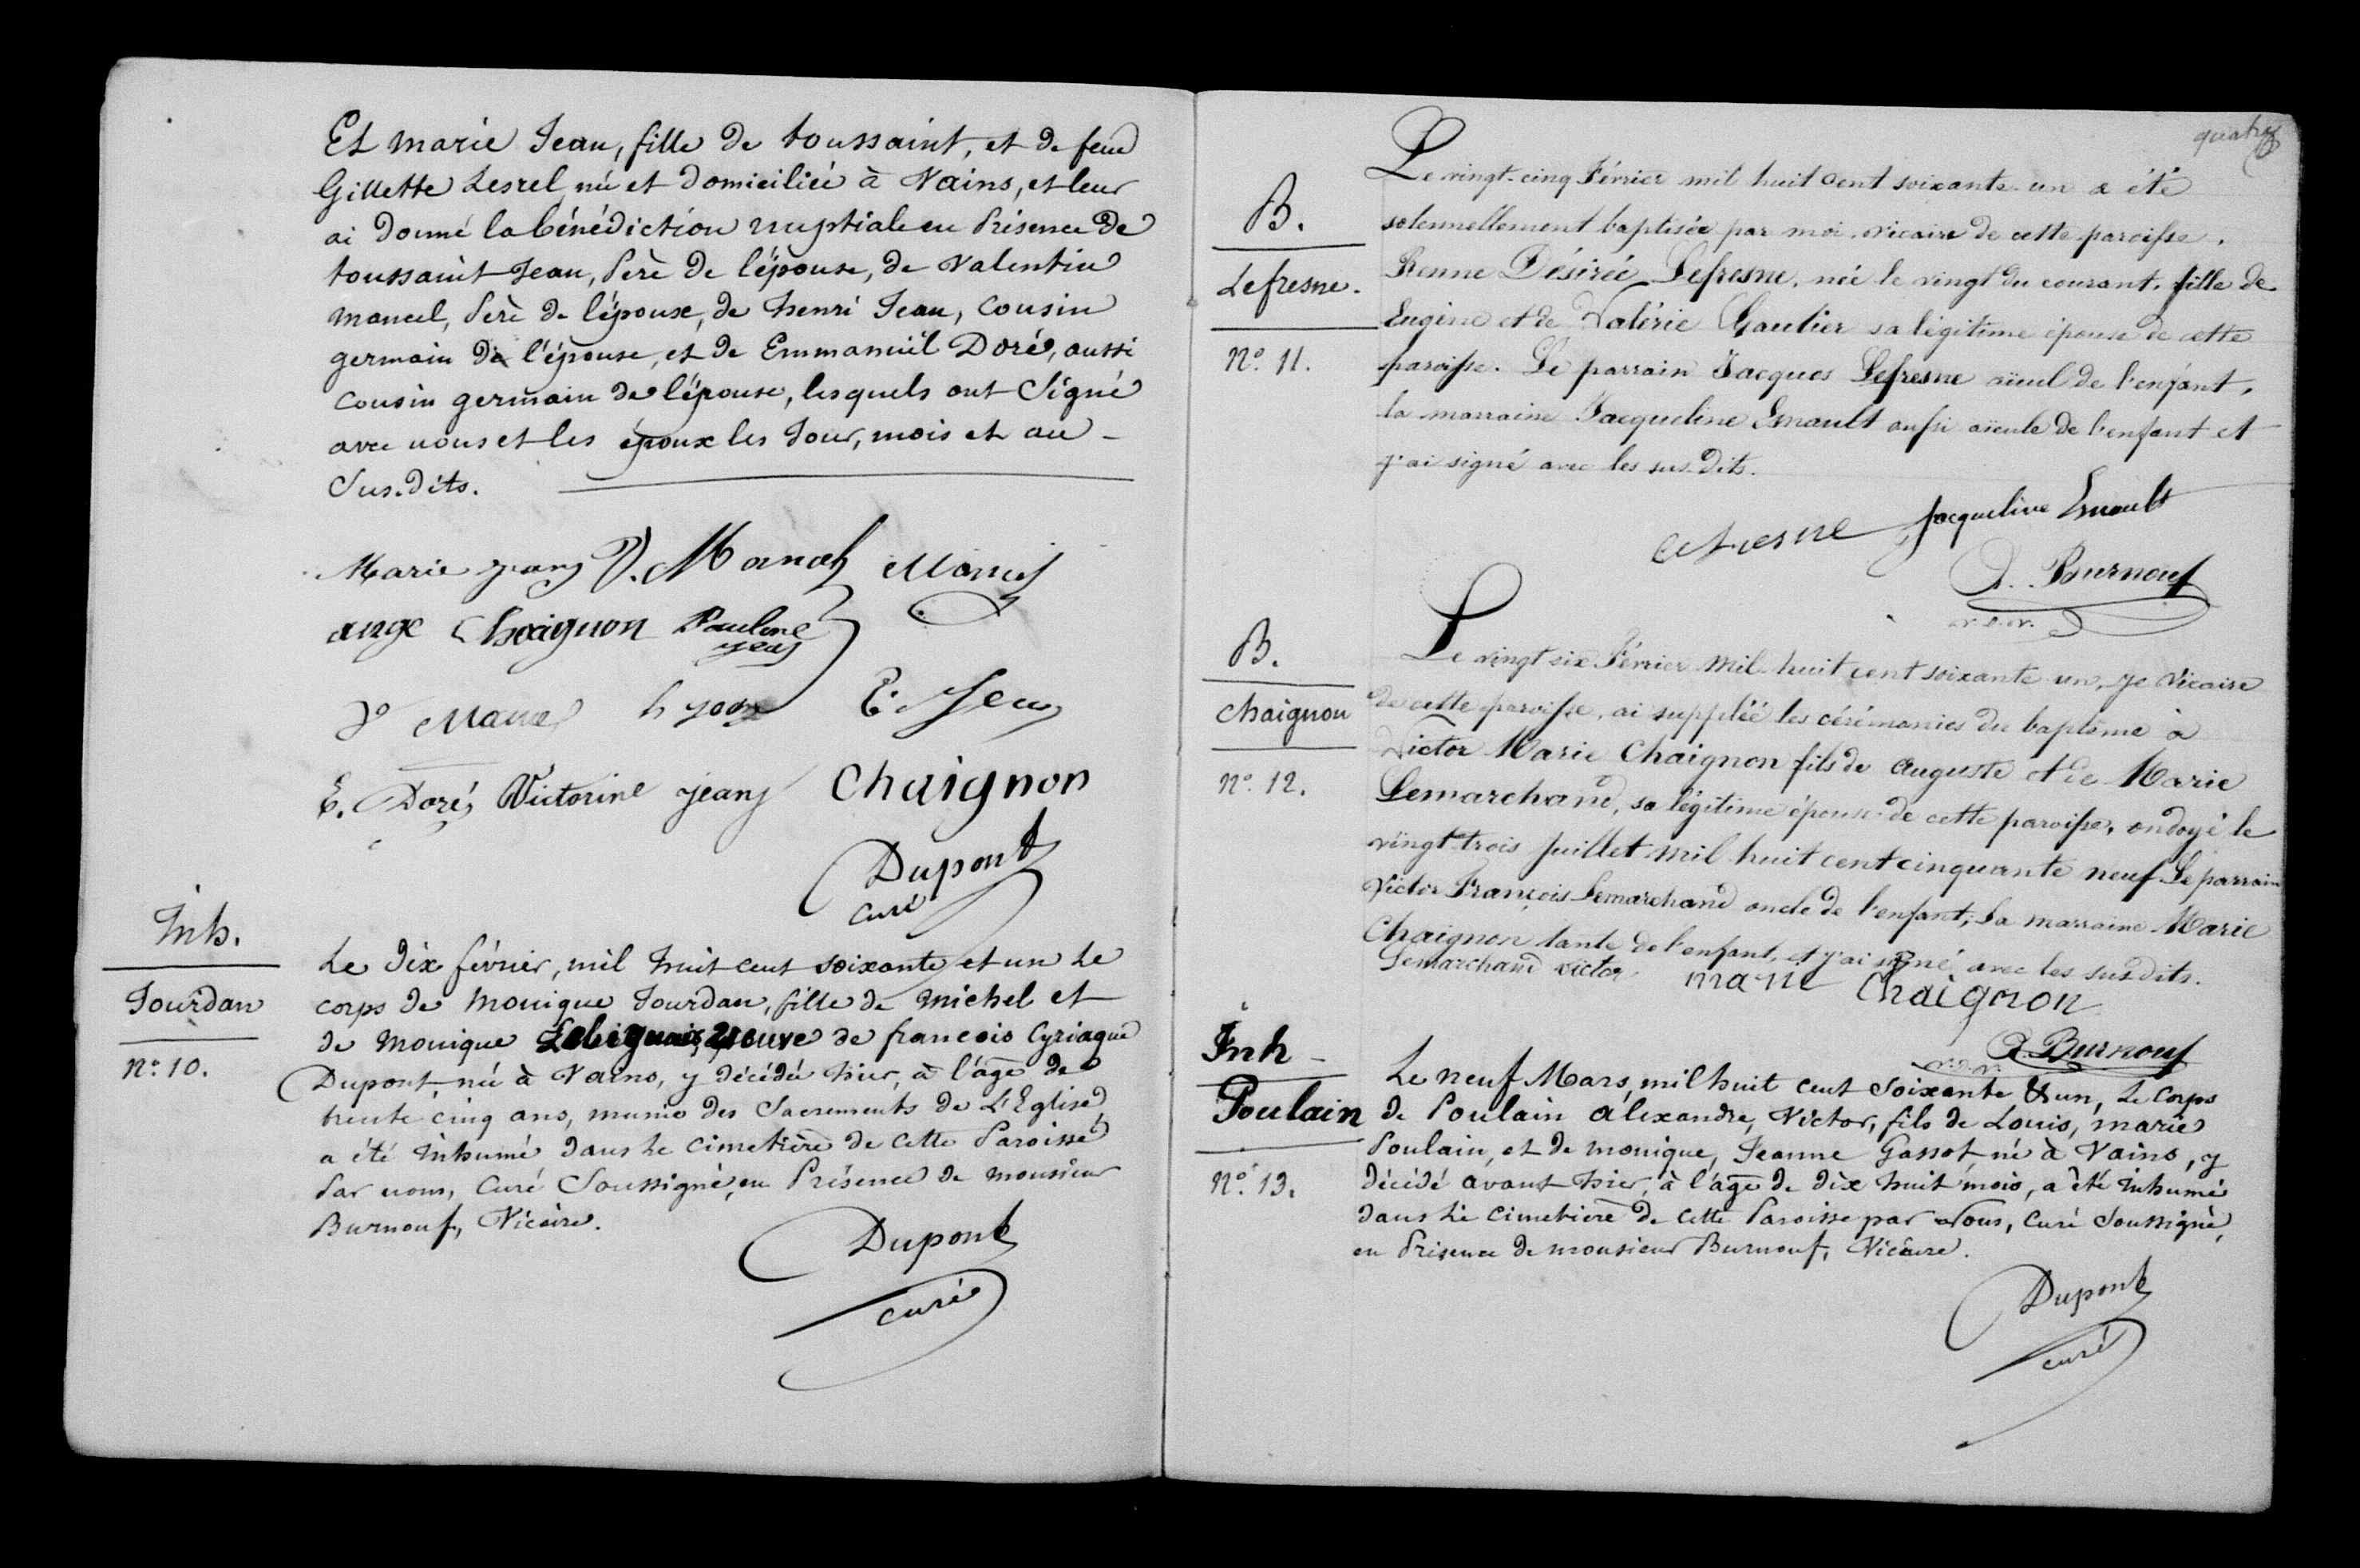 Et marie Jean, fille de toussaint, et de feue
Gillette Lesrel, née et domiciliée à Vains, et leur
ai donné la bénédiction nuptiale en Présence de
toussaint Jean, Père de l'épouse, de Valentin
mancel, Père de l'époux, de henri Jean, Cousin
germain de l'épouse, et de Emmanuël Doré, aussi
Cousin germain de l'épouse, lesquels ont Signé
avec nous et les époux les Jour, mois et an
Sus-dits.
Marie jean V. Mancel Mancel
ange Chaignon Pauline jean
E. Jean
E. Doré Victorine jean Chaignon
Dupont
curé
Inh.
Jourdan
N° 10.
Le dix février, mil huit cent soixante et un Le
corps de Monique Jourdan, fille de Michel et
de Monique veuve de francois Cyriaque
Dupont, née à Vains, y décédée hier, à l'âge de
trente cinq ans, munie des Sacrements de L'Eglise,
a été Inhumé dans Le Cimetière de cette Paroisse
Par nous, Curé Soussigné, en Présence de monsieur
Burnouf, Vicaire.
Dupont
curé
quatre
B.
Lefresne.
N° 11.
Le vingt-cinq Février mil huit cent soixante-un a été
solennellement baptisée par moi, vicaire de cette paroisse,
Désirée Lefresne, née le vingt du courant, fille de
Eugène et de Valérie Gautier sa légitime épouse de cette
paroisse. Le parrain Jacques Lefresne aïeul de l'enfant,
la marraine Jacqueline Enault aussi aïeule de l'enfant et
j'ai signé avec les sus-dits.
Lefresne Jacqueline Enault
A. Burnouf
B.
Chaignon
N° 12.
Le vingt six Février mil huit cent soixante-un, je Vicaire
de cette paroisse, ai suppléé les cérémonies du baptême à
Victor Marie Chaignon fils de Auguste et de Marie
Lemarchand, sa légitime épouse de cette paroisse, ondoyé le
vingt-trois Juillet mil huit cent cinquante neuf. Le parrain
Victor François Lemarchand oncle de l'enfant, la marraine Marie
Chaignon tante de l'enfant, et j'ai signé avec les sus-dits.
Lemarchand victor marie Chaignon
A. Burnouf
Inh
Poulain
N° 13.
Le neuf Mars, mil huit cent Soixante & un, Le Corps
de Poulain alexandre, Victor, fils de Louis, marie
Poulain, et de monique, Jeanne Gassot, né à Vains, y
décédé avant hier, à l'âge de dix huit mois, a été Inhumé
dans Le Cimetière de cette Paroisse par Nous, Curé Soussigné,
en Présence de monsieur Burnouf, Vicaire.
Dupont
curé